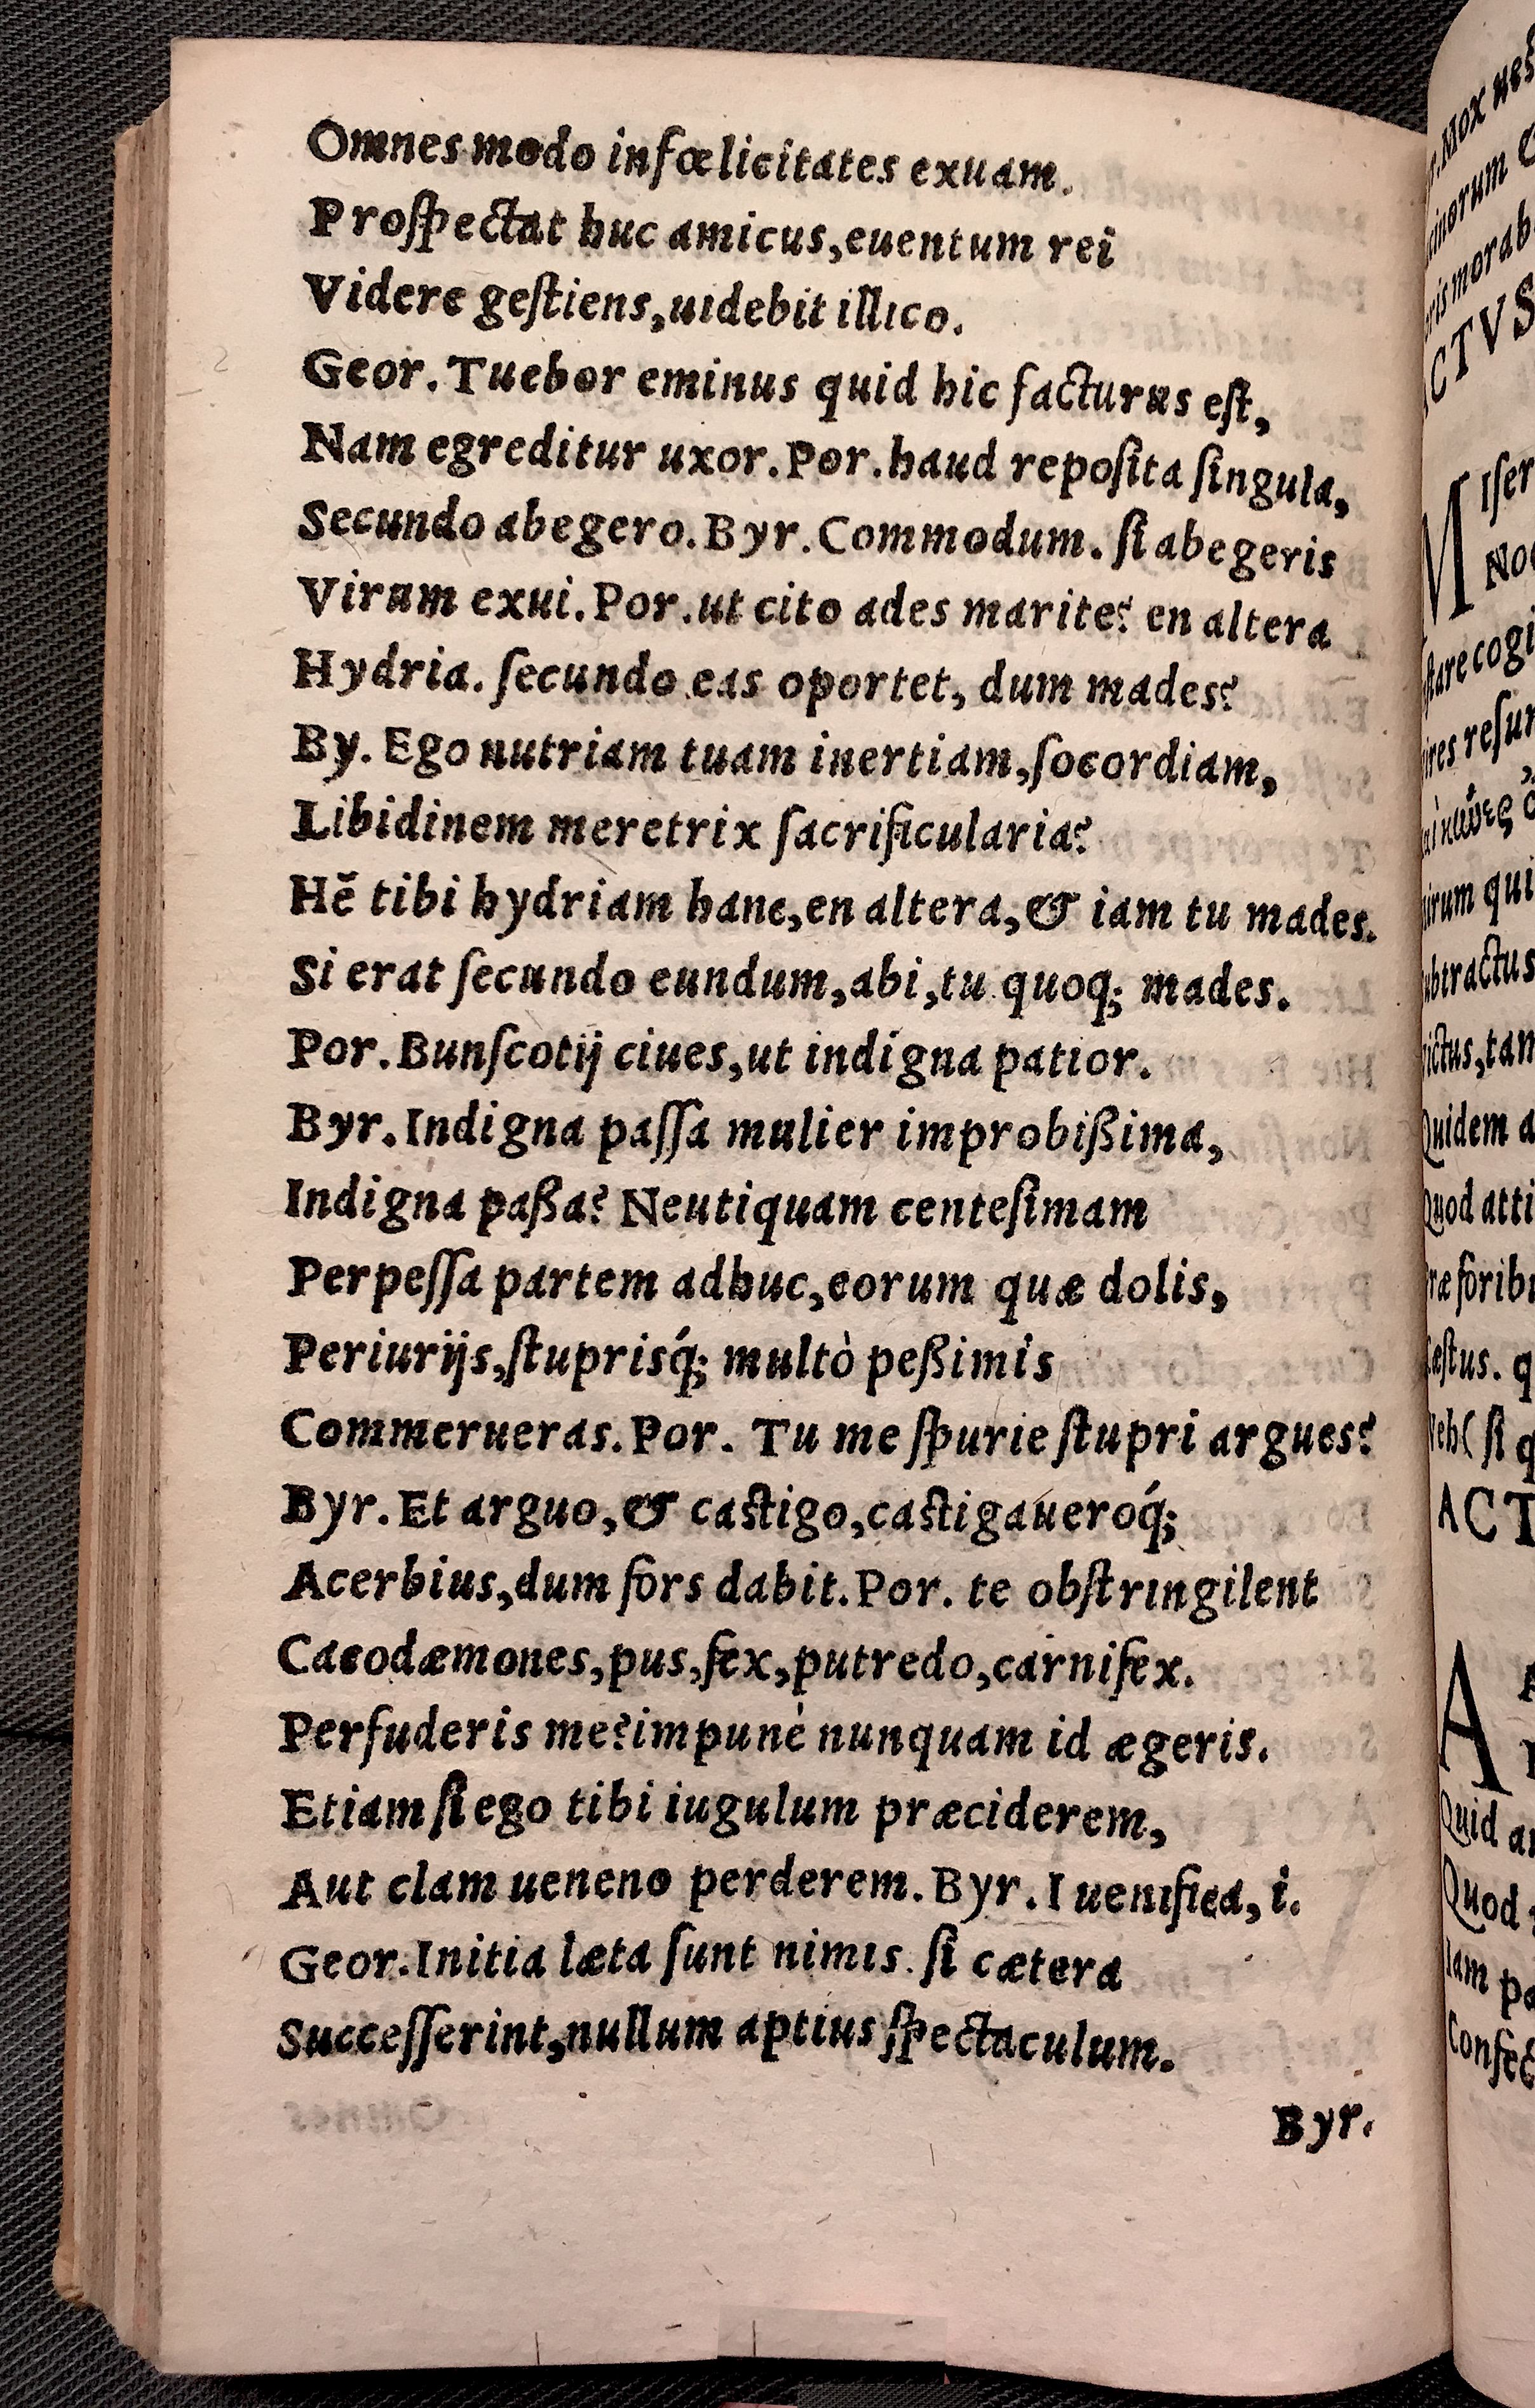 Omnes modo infœlicitates exuam.
Proſpectat huc amicus,euentum rei
Videre geſtiens,uidebit illico.
Geor. Tuebor eminus quid hic facturus eſt,
Nam egreditur uxor. Por. haud repoſita ſingula,
Secundo abegero. Byr. Commodum. ſi abegeris
Virum exui. Por. ut cito ades marite? en altera
Hydria. ſecundo eas oportet, dum mades?
By. Ego nutriam tuam inertiam,ſocordiam,
Libidinem meretrix ſacrificularia?
Hē tibi hydriam hanc,en altera,& iam tu mades.
Si erat ſecundo eundum,abi,tu quoq; mades.
Por. Bunſcotij ciues,ut indigna patior.
Byr. Indigna paſſa mulier improbißima,
Indigna paßa? Neutiquam centeſimam
Perpeſſa partem adhuc,eorum quæ dolis,
Periurijs,ſtuprisq́; multò peßimis
Commerueras. Por. Tu me ſpurie ſtupri argues?
Byr. Et arguo,& caſtigo,caſtigaueroq́;
Acerbius,dum fors dabit. Por. te obſtringilent
Cacodæmones,pus,fex,putredo,carnifex.
Perfuderis me?impunè nunquam id ægeris.
Etiam ſi ego tibi iugulum præciderem,
Aut clam ueneno perderem. Byr. I uenifica, i.
Geor. Initia læta ſunt nimis. ſi cætera
Succeſſerint,nullum aptius ſpectaculum.
Byr.